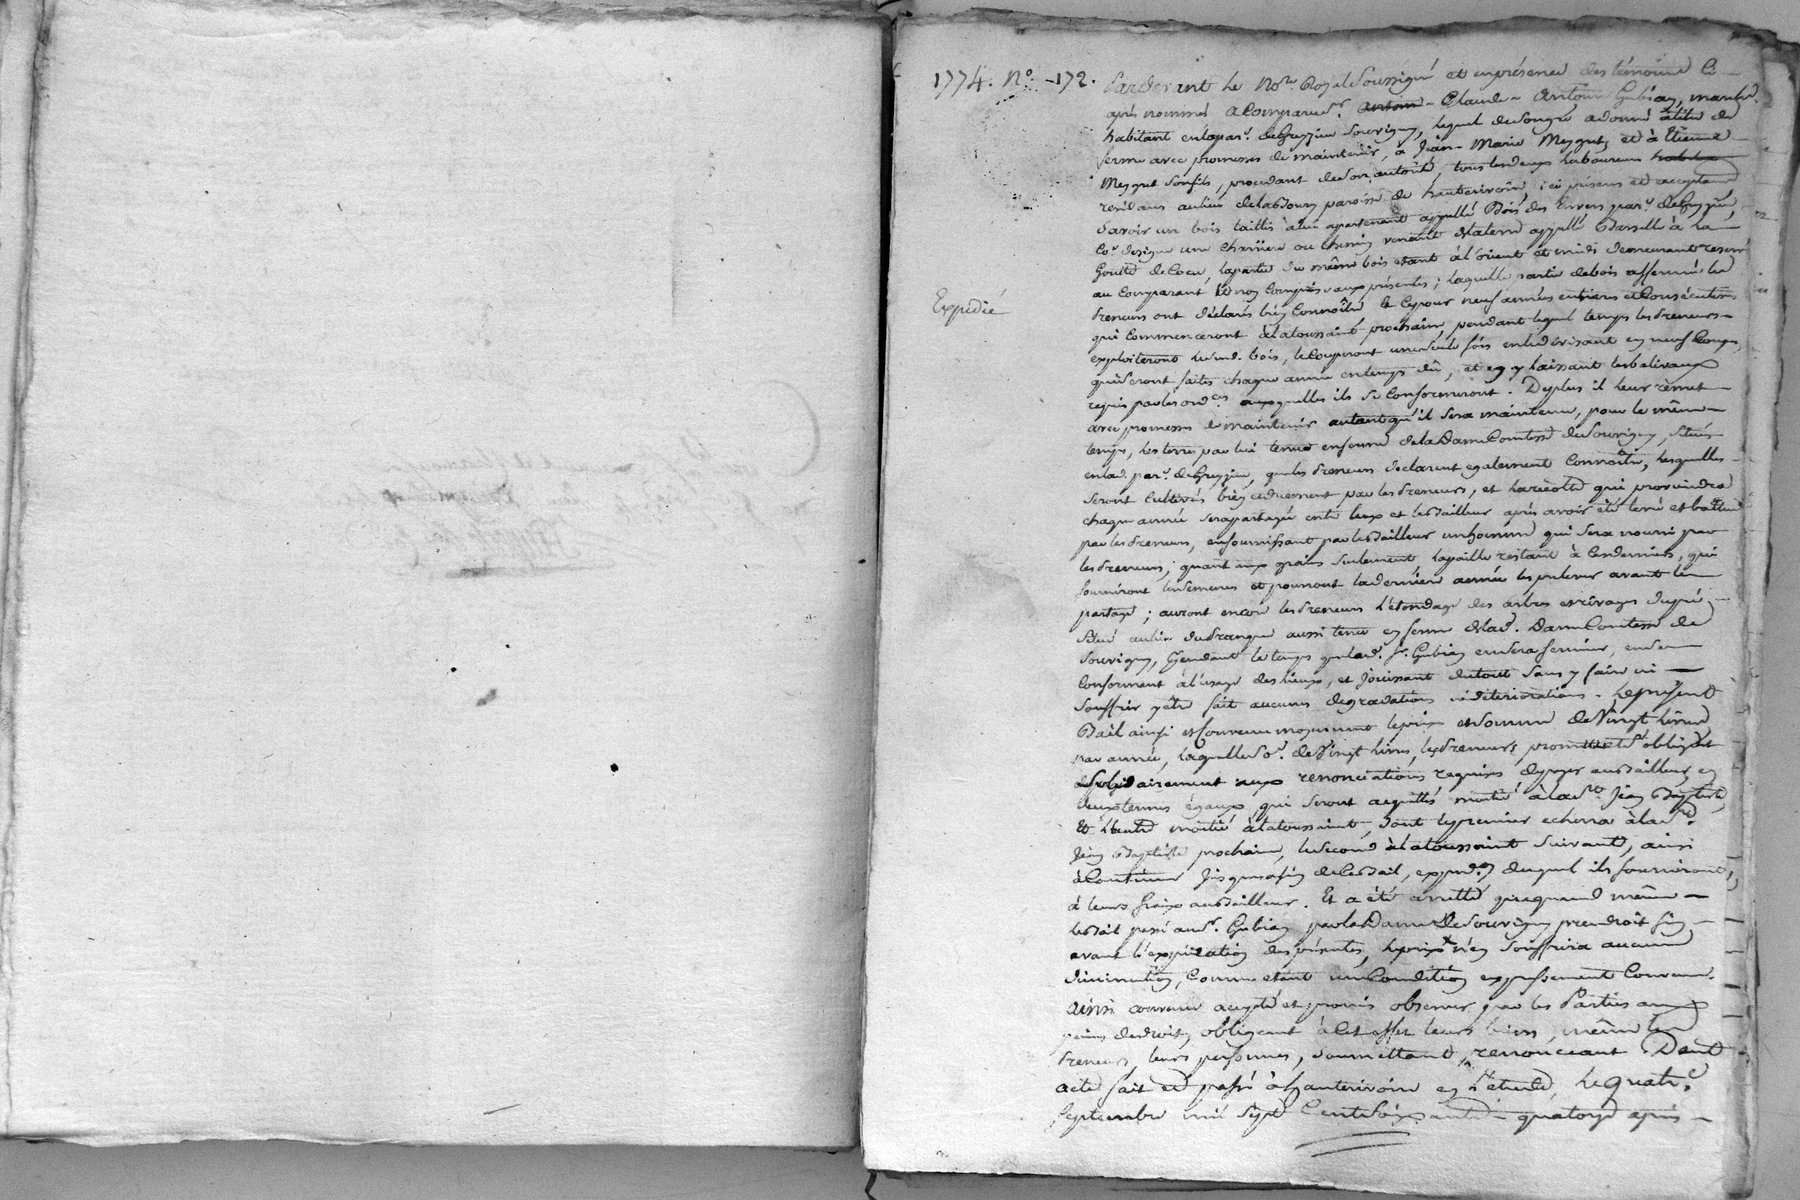 1774. N° 172.
Expédié
Pardevant le No.re Royal Soussigné et enprésence des témoins C
après nommés a Comparu S.r Claude Antoine Gubian, march.d
habitant enlapar. deGrezieu Souvigny, lequel desongré adonné àtitre de
ferme avec promesse de maintenir, à Jean Marie Meygret et à Etienne
Meygret Sonfils, procedant desonautorité, tous lesdeux laboureurs
residans aulieu delabDoury paroisse de hauterivoire, ici présens et acceptans
Savoir un bois taillis àlui apartenant appellé Bois des Envers par. deGrezieu,
Co. designé une Charriere ou chemin venant dela terre appellé à La
Goutte de Cocu, lapartie du même bois etant à l'orient et midi demeurant reservé
au Comparant et non Comprise auxprésentes; laquelle partie debois affermée les
Preneurs ont déclaré bien Connoître Et Cepour neuf années entieres etConsécutives
qui Commenceront àlatoussaint prochaine, pendant lequel temps lesPreneurs
exploiteront lesusd. bois, leCouperont uneseule fois enledivisant en neuf Coupes,
quiseront faites chaque année entemps dû, et en y laissant lesbaliveaux
requis parles ord.ces auxquelles ils se Conformeront. Deplus il leur remet
avec promesse de maintenir autantqu'il sera maintenu, pour le même
temps, les terres par lui tenues enferme delaDameComtesse deSouvigny, Situées
enlad. par. deGrezieu, queles Preneurs declarent egalement Connoître, lesquelles
seront Cultivées bien etduement par lesPreneurs, et larécolte qui proviendra
chaque année serapartagée entre Eux et leBailleur après avoir été levée et battue
par lesPreneurs, enfournissant par leBailleur unhomme qui sera nourri par
lesPreneurs; quant aux grains seulement lapaille restant à Cesderniers, qui
fourniront lessemences et pourront laderniere année les prelever avant le
partage; auront encore lesPreneurs l'etondage des arbres etrivages dupré
situé aulieu aussi tenu en ferme delad. DameComtesse de
Souvigny, Pendant letemps queled. S.r Gubian ensera fermier, ense
Conformant àl'usage deslieux, et Jouissant dutout Sans y faire ni
Souffrir yêtre fait aucunes degradations nideteriorations. Leprésent
Bail ainsi etConvenu moyennant leprix etSomme deVingt livres
par année, laquelleSo. deVingt livres, lesPreneurs, promettent et s'obligent
solidairement aux renonciations requises depayer auBailleur en
deux termes égaux, qui seront acquittés moitié àlaS.t Jean Baptiste
Et l'autre moitié àlatoussaint, dont lepremier echerra àlaS.t
Jean Baptiste prochaine, lesecond àlatoussaint suivant, ainsi
àContinuer jusquesafin deCeBail, exped.on duquel ils fourniront
à leurs fraix auBailleur. Et a été arretté quequand même
leBail passé aud. S.r Gubian parlaDame deSouvigny prendroit fin
avant l'expiration des présentes, leprix n'en Souffrira aucune
diminution, Comme etant uneCondition expressement Convenue.
Ainsi convenu accepté et promis observer par les Parties aux
peines dedroit, obligeant àCet effet leurs biens, même les
Preneurs leurs personnes, soumettant, renonceant Dont
acte fait et passé àhauterivoire en l'etude, Lequatre
Septembre mil Sept CentSoixante quatorze après